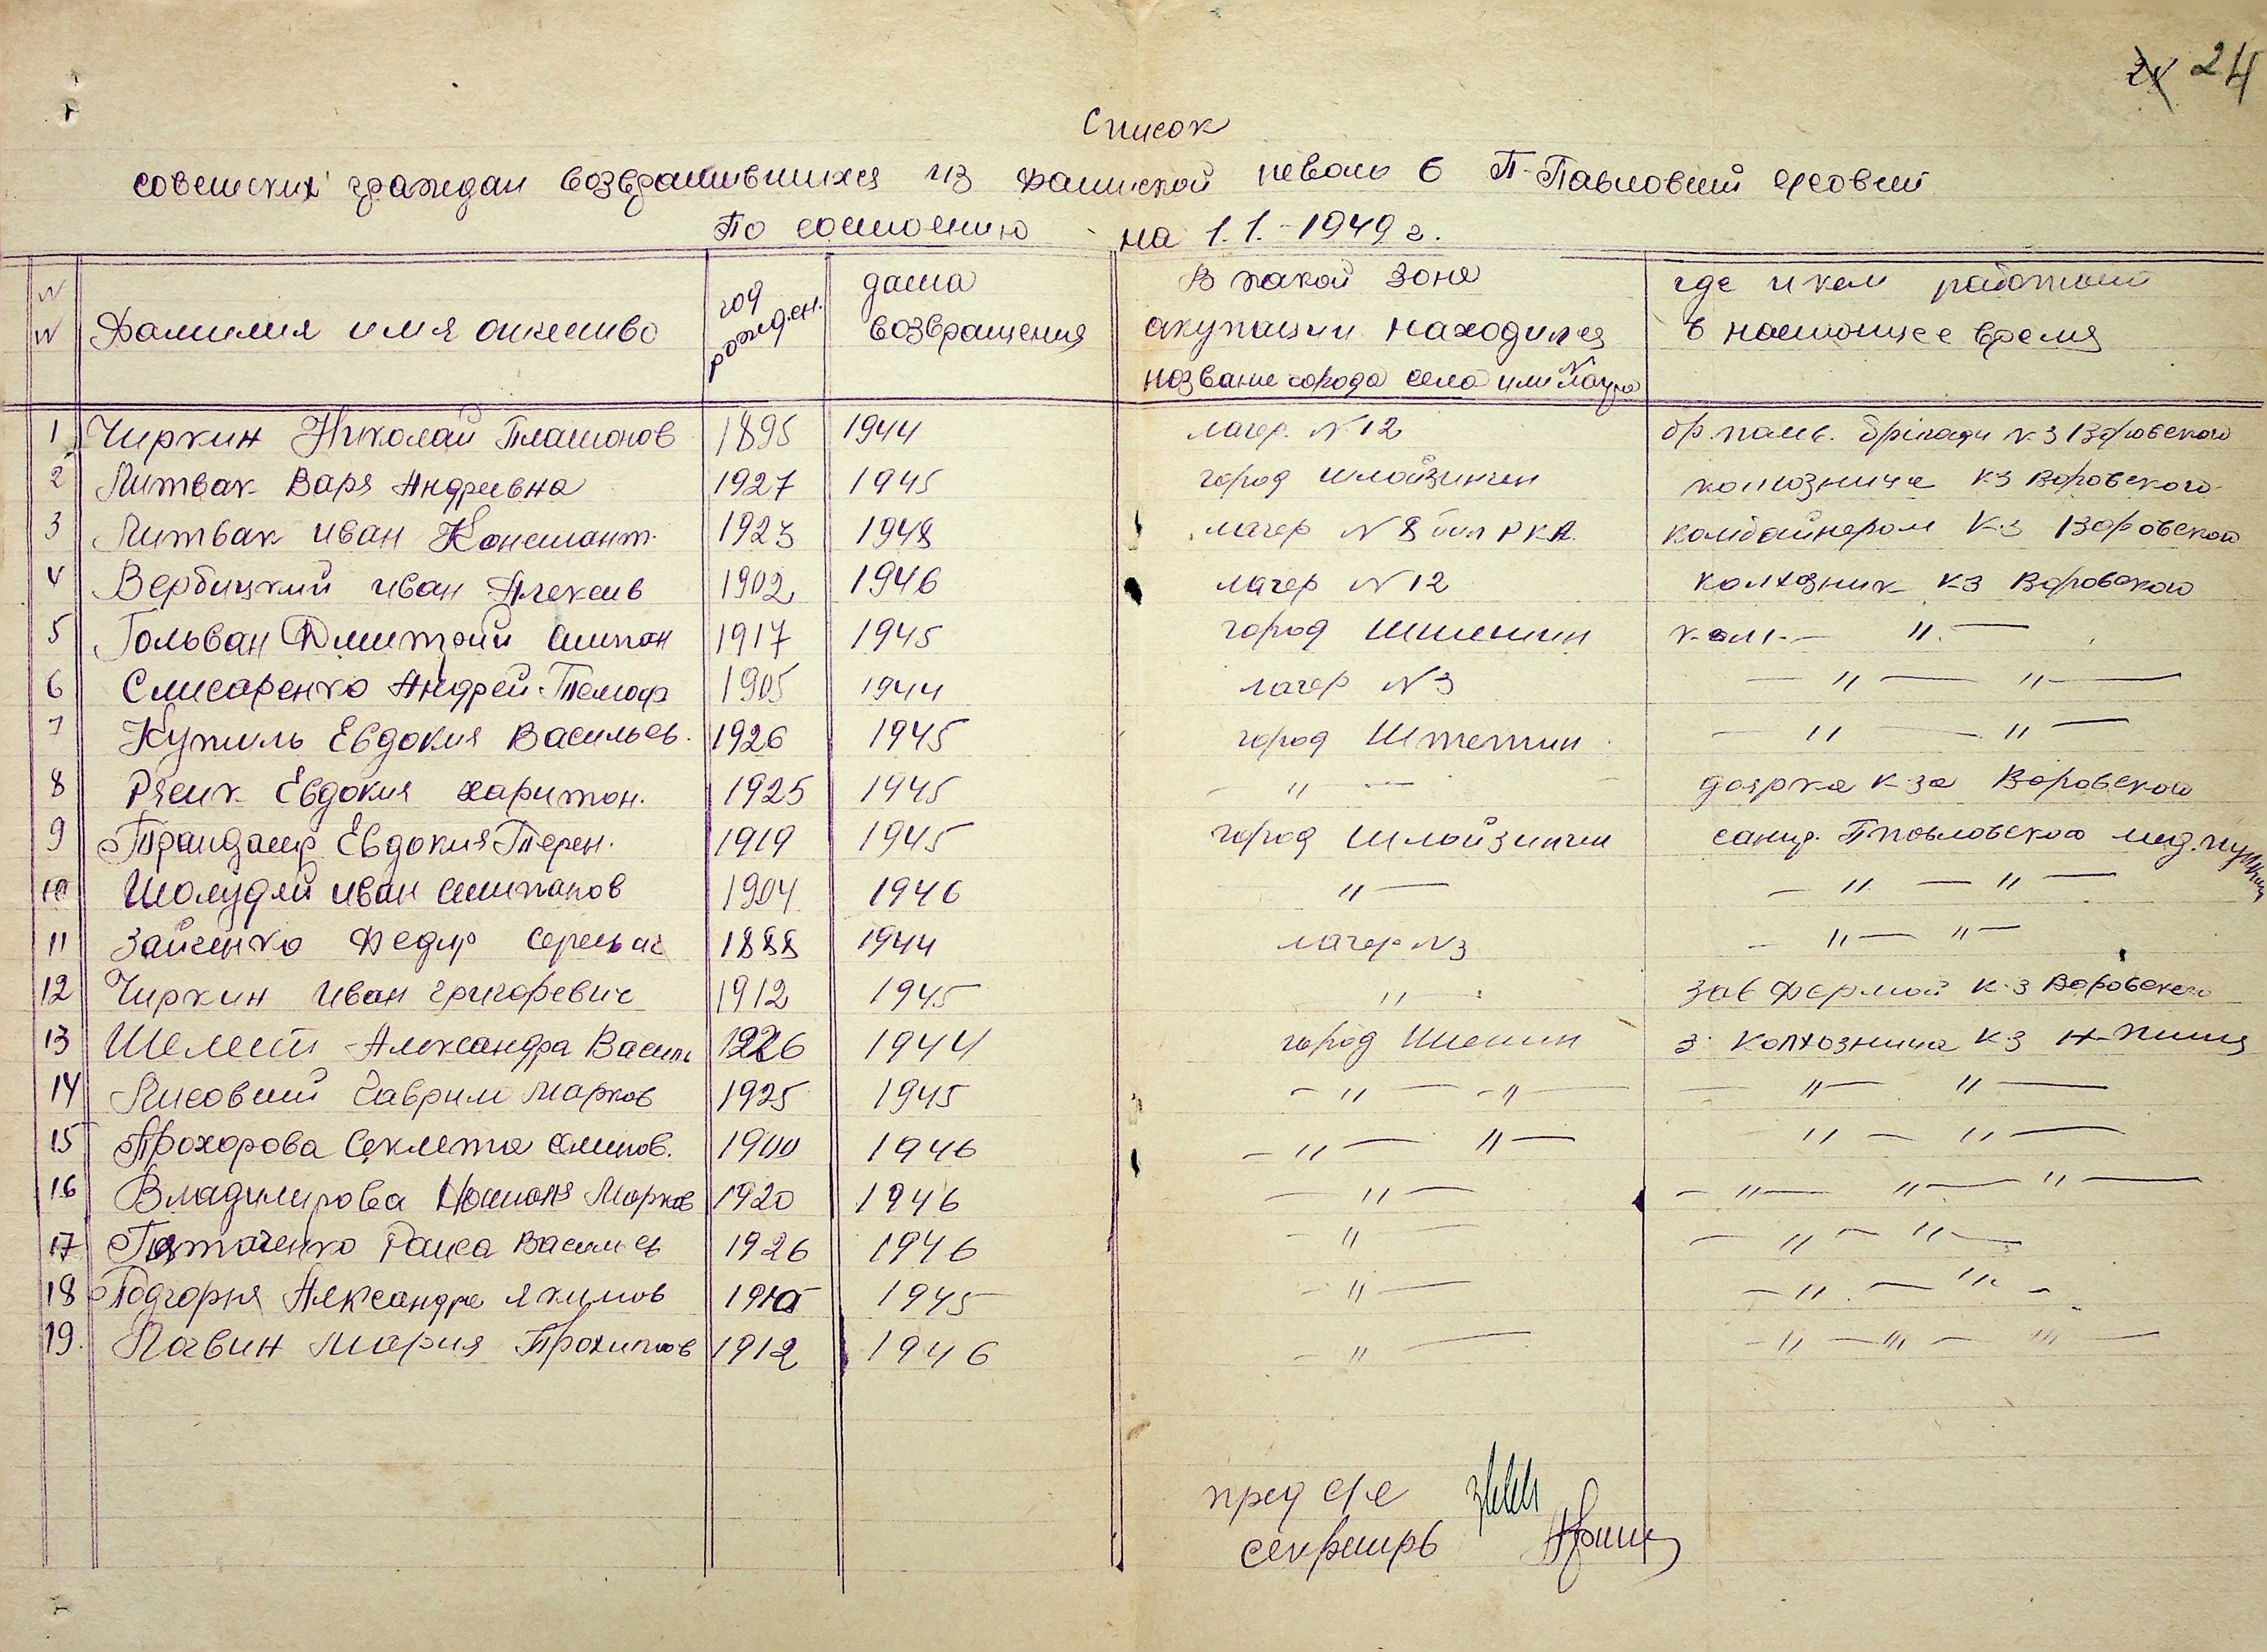 24
Список
советских граждан возвратившихся из фашиской неволи в П-Павловский с/совет
По состоянию на 1.1.-1949 г.
N N Фамилия имя отчество год рожден. дата возвращения В какой зоне акупации находился название города села или N лагра где и кем работает в настоящее время
1 Чиркин Николай Платонов 1895 1944 лагер. N 12 бр. палив. брігади к-з Воровского
2 Литвак Варя Андреевна 1927 1945 город Шлойзинген колхознице к-з Воровского
3 Литвак Иван Констант. 1923 1948 лагер N 8 был РКА. комбайнером к-з Воровского
4 Вербицкий Иван Алексеив 1902 1946 лагер N 12 колхозник к-з Воровского
5 Гольван Дмитрий Степан 1917 1945 город Штетин кол. — " —
6 Слисаренко Андрей Темоф 1905 1944 лагер N 3 — " — " —
7 Кужиль Евдокия Васильев. 1926 1945 город Штетин — " — " —
8 Рясик Евдокия Харитон. 1925 1945 — " — доярка к-за Воровского
9 Евдокия Терен. 1919 1945 город Шлойзинген санир. Ппавловского мед. пункта
10 Шолудей Иван Степанов 1904 1946 " — — " — " —
11 Зайченко Федир Сергеевич 1888 1944 лагер N 3 — " — " —
12 Чиркин Иван Григоревич 1912 1945 " — зав фермой к-з Воровского
13 Шелест Александра Василь 1926 1944 город Штетин колхозница к-з
14 Лисовский Гаврило Марков 1925 1945 — " — — " — — " — " —
15 Прохорова Секлета 1900 1946 — " — " — " — " —
16 Владимирова Марков 1920 1946 — " — — " — " — " —
17 Раиса Васильев 1926 1946 — " — — " — " —
18 Подгорня Александра Якимов 1945 — " — — " — " —
19. Мария 1912 1946 — " — — " — " — " —
пред с/с
секретарь